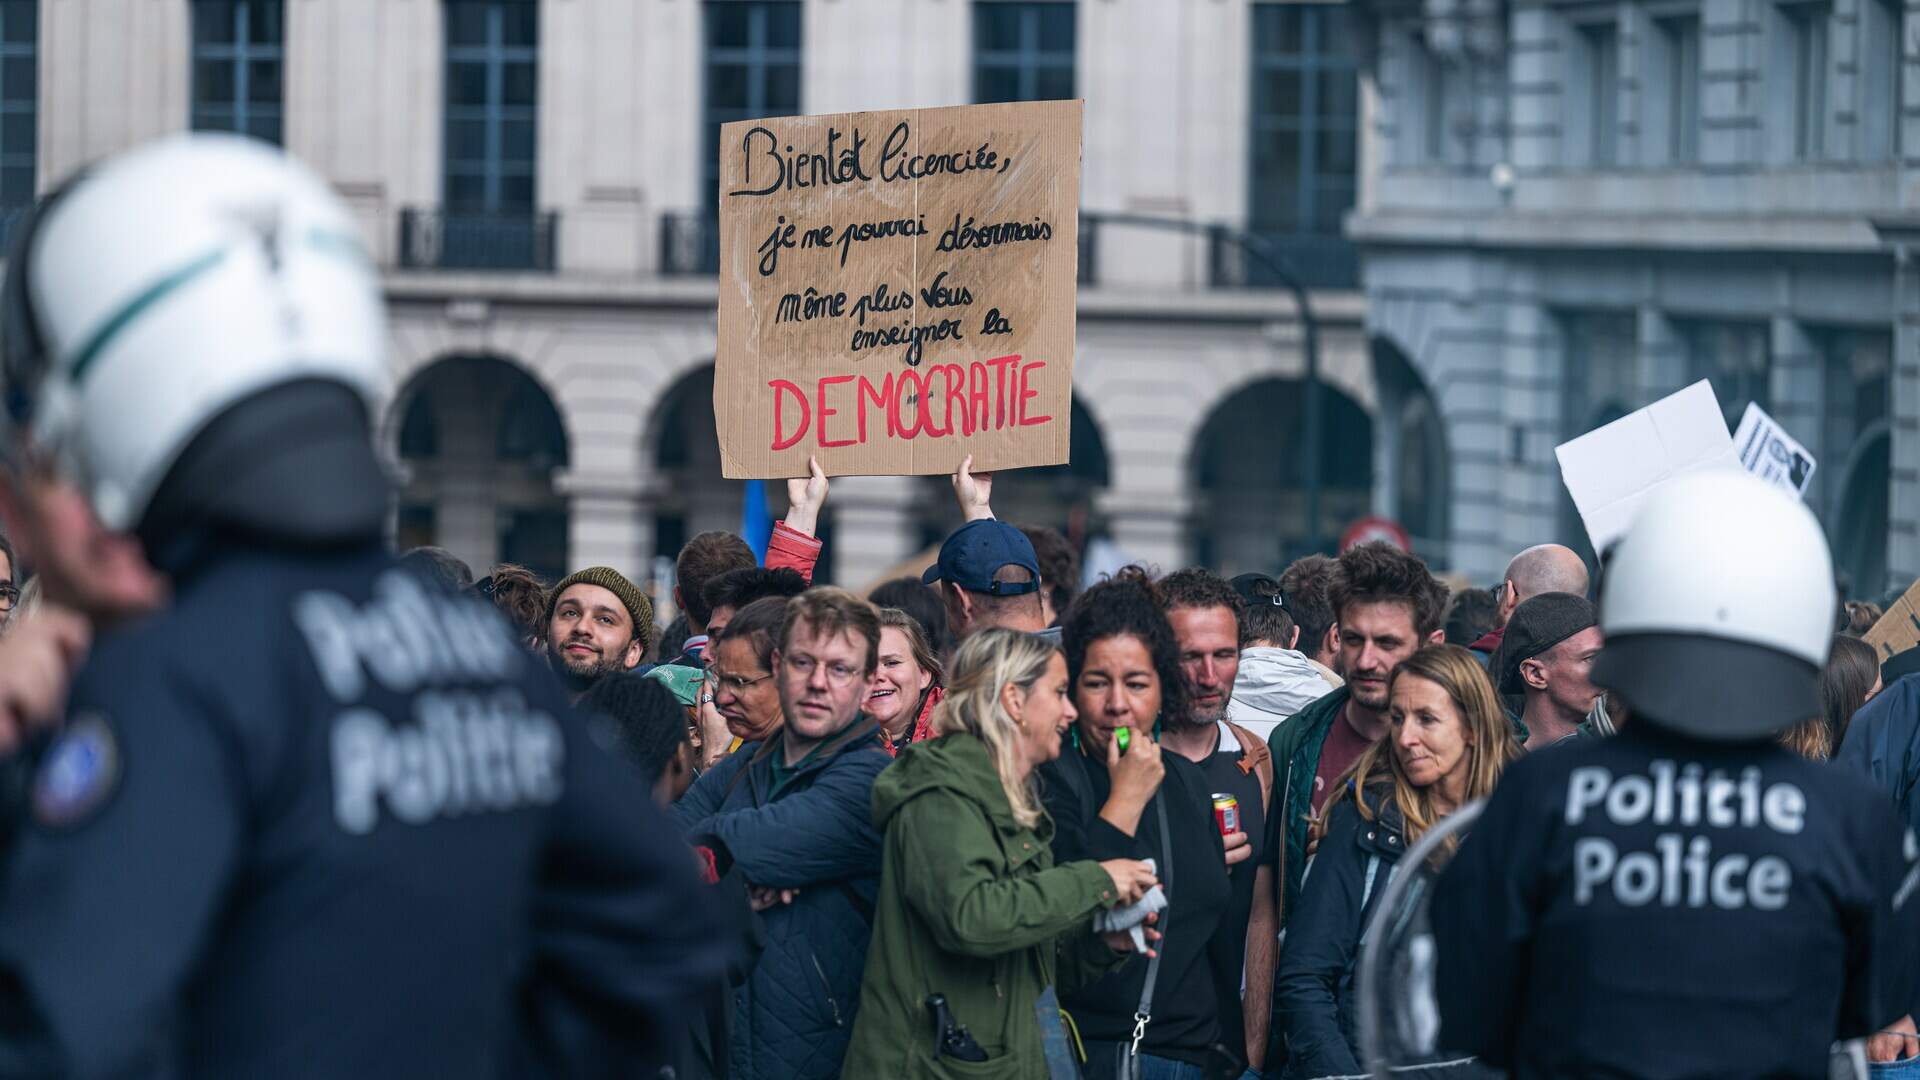 Bientôt licenciée,
je ne pourrai désormais
même plus vous
enseigner la
DEMOCRATIE
Politie
Politie
Politie
Police